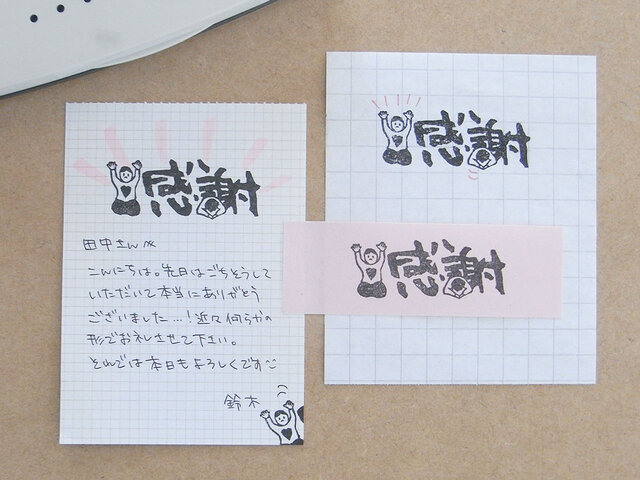 感謝
田中さんへ
こんにちは。先日はごちそうして
いただいて本当にありがとう
ございました…!近々何らかの
形でお礼させて下さい。
それでは本日もよろしくです
鈴木
感謝
感謝